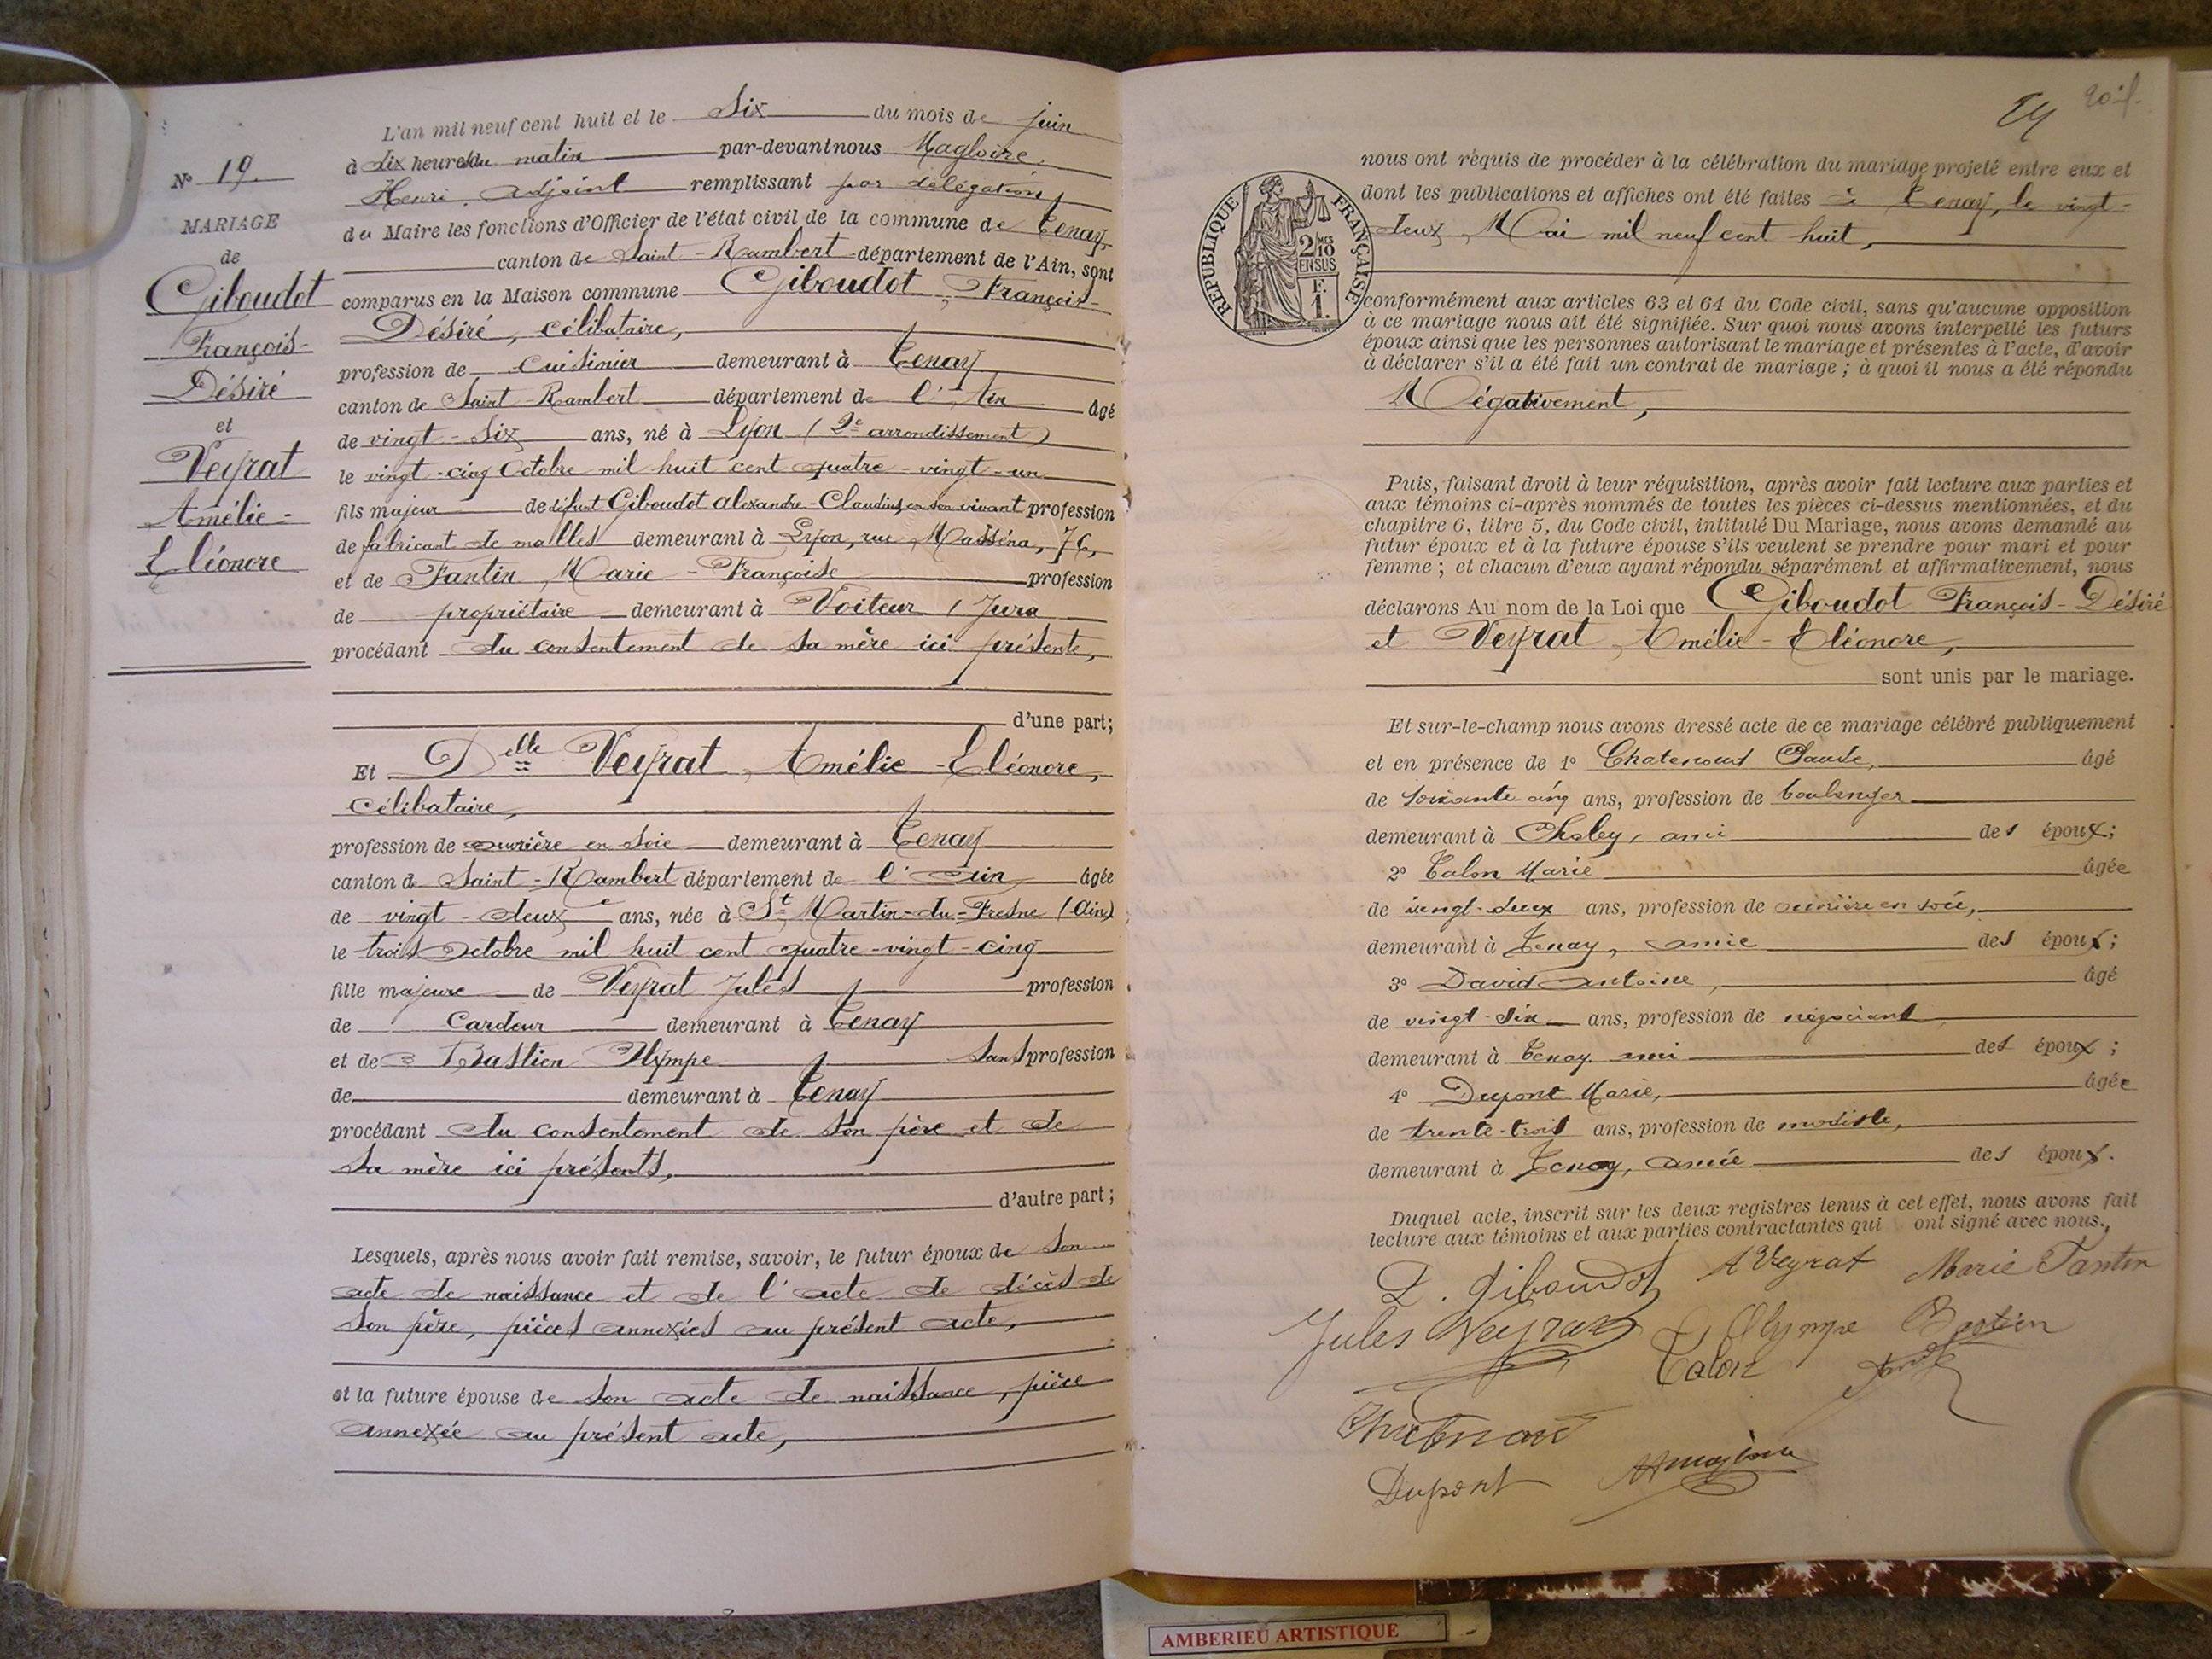 L'an mil neuf cent huit et le Six du mois de juin
à dix heures du matin par-devant nous Magloire
Henri, adjoint remplissant par délégation
du Maire les fonctions d'Officier de l'état civil de la commune de Tenay,
canton de Saint-Rambert département de l'Ain, sont
comparus en la Maison commune Giboudot, François-
Désiré, célibataire,
profession de cuisinier demeurant à Tenay
canton de Saint-Rambert département de l'Ain âgé
de vingt-six ans, né à Lyon (2e arrondissement)
le vingt-cinq Octobre mil huit cent quatre-vingt-un
fils majeur de défunt Giboudot alexandre-Claudius en son vivant profession
de fabricant de malles demeurant à Lyon, rue Masséna, 76,
et de Fantin Marie-Françoise profession
de propriétaire demeurant à Voiteur (Jura
procédant du consentement de sa mère ici présente,
d'une part;
Et Delle Veyrat, Amélie-Eléonore,
célibataire,
profession de ouvrière en soie demeurant à Tenay
canton de Saint-Rambert département de l'Ain âgée
de vingt-deux ans, née à St Martin-du-Fresne (Ain)
le trois Octobre mil huit cent quatre-vingt-cinq
fille majeure de Veyrat Jules profession
de Cardeur demeurant à Tenay
et de Bastien Olympe sans profession
de demeurant à Tenay
procédant du consentement de son père et de
sa mère ici présents,
d'autre part;
Lesquels, après nous avoir fait remise, savoir, le futur époux de son
acte de naissance et de l'acte de décès de
son père, pièces annexées au présent acte,
et la future épouse de son acte de naissance, pièce
annexée au présent acte,
No 19.
MARIAGE
de
Giboudot
François-
Désiré
et
Veyrat
Amélie-
Eléonore
24
nous ont requis de procéder à la célébration du mariage projeté entre eux et
dont les publications et affiches ont été faites à Tenay, le vingt-
deux Mai mil neuf cent huit,
RÉPUBLIQUE FRANÇAISE
2/10 MES
EN SUS
1 F.
conformément aux articles 63 et 64 du Code civil, sans qu'aucune opposition
à ce mariage nous ait été signifiée. Sur quoi nous avons interpellé les futurs
époux ainsi que les personnes autorisant le mariage et présentes à l'acte, d'avoir
à déclarer s'il a été fait un contrat de mariage ; à quoi il nous a été répondu
Négativement,
Puis, faisant droit à leur réquisition, après avoir fait lecture aux parties et
aux témoins ci-après nommés de toutes les pièces ci-dessus mentionnées, et du
chapitre 6, titre 5, du Code civil, intitulé Du Mariage, nous avons demandé au
futur époux et à la future épouse s'ils veulent se prendre pour mari et pour
femme ; et chacun d'eux ayant répondu séparément et affirmativement, nous
déclarons Au nom de la Loi que Giboudot François-Désiré
et Veyrat, Amélie-Eléonore,
sont unis par le mariage.
Et sur-le-champ nous avons dressé acte de ce mariage célébré publiquement
et en présence de 1o Claude, âgé
de soixante cinq ans, profession de boulanger
demeurant à Chaley, ami des époux;
2o Talon Marie âgée
de vingt-deux ans, profession de ouvrière en soie,
demeurant à Tenay, amie des époux;
3o David antoine, âgé
de vingt-six ans, profession de négociant
demeurant à Tenay ami des époux ;
4o Dupont Marie, âgée
de trente-trois ans, profession de modiste,
demeurant à Tenay, amie des époux.
Duquel acte, inscrit sur les deux registres tenus à cet effet, nous avons fait
lecture aux témoins et aux parties contractantes qui ont signé avec nous.
D. Giboudot A Veyrat Marie Fantin
Jules Veyrat Olympe Bastien
Talon
Dupont
AMBERIEU ARTISTIQUE